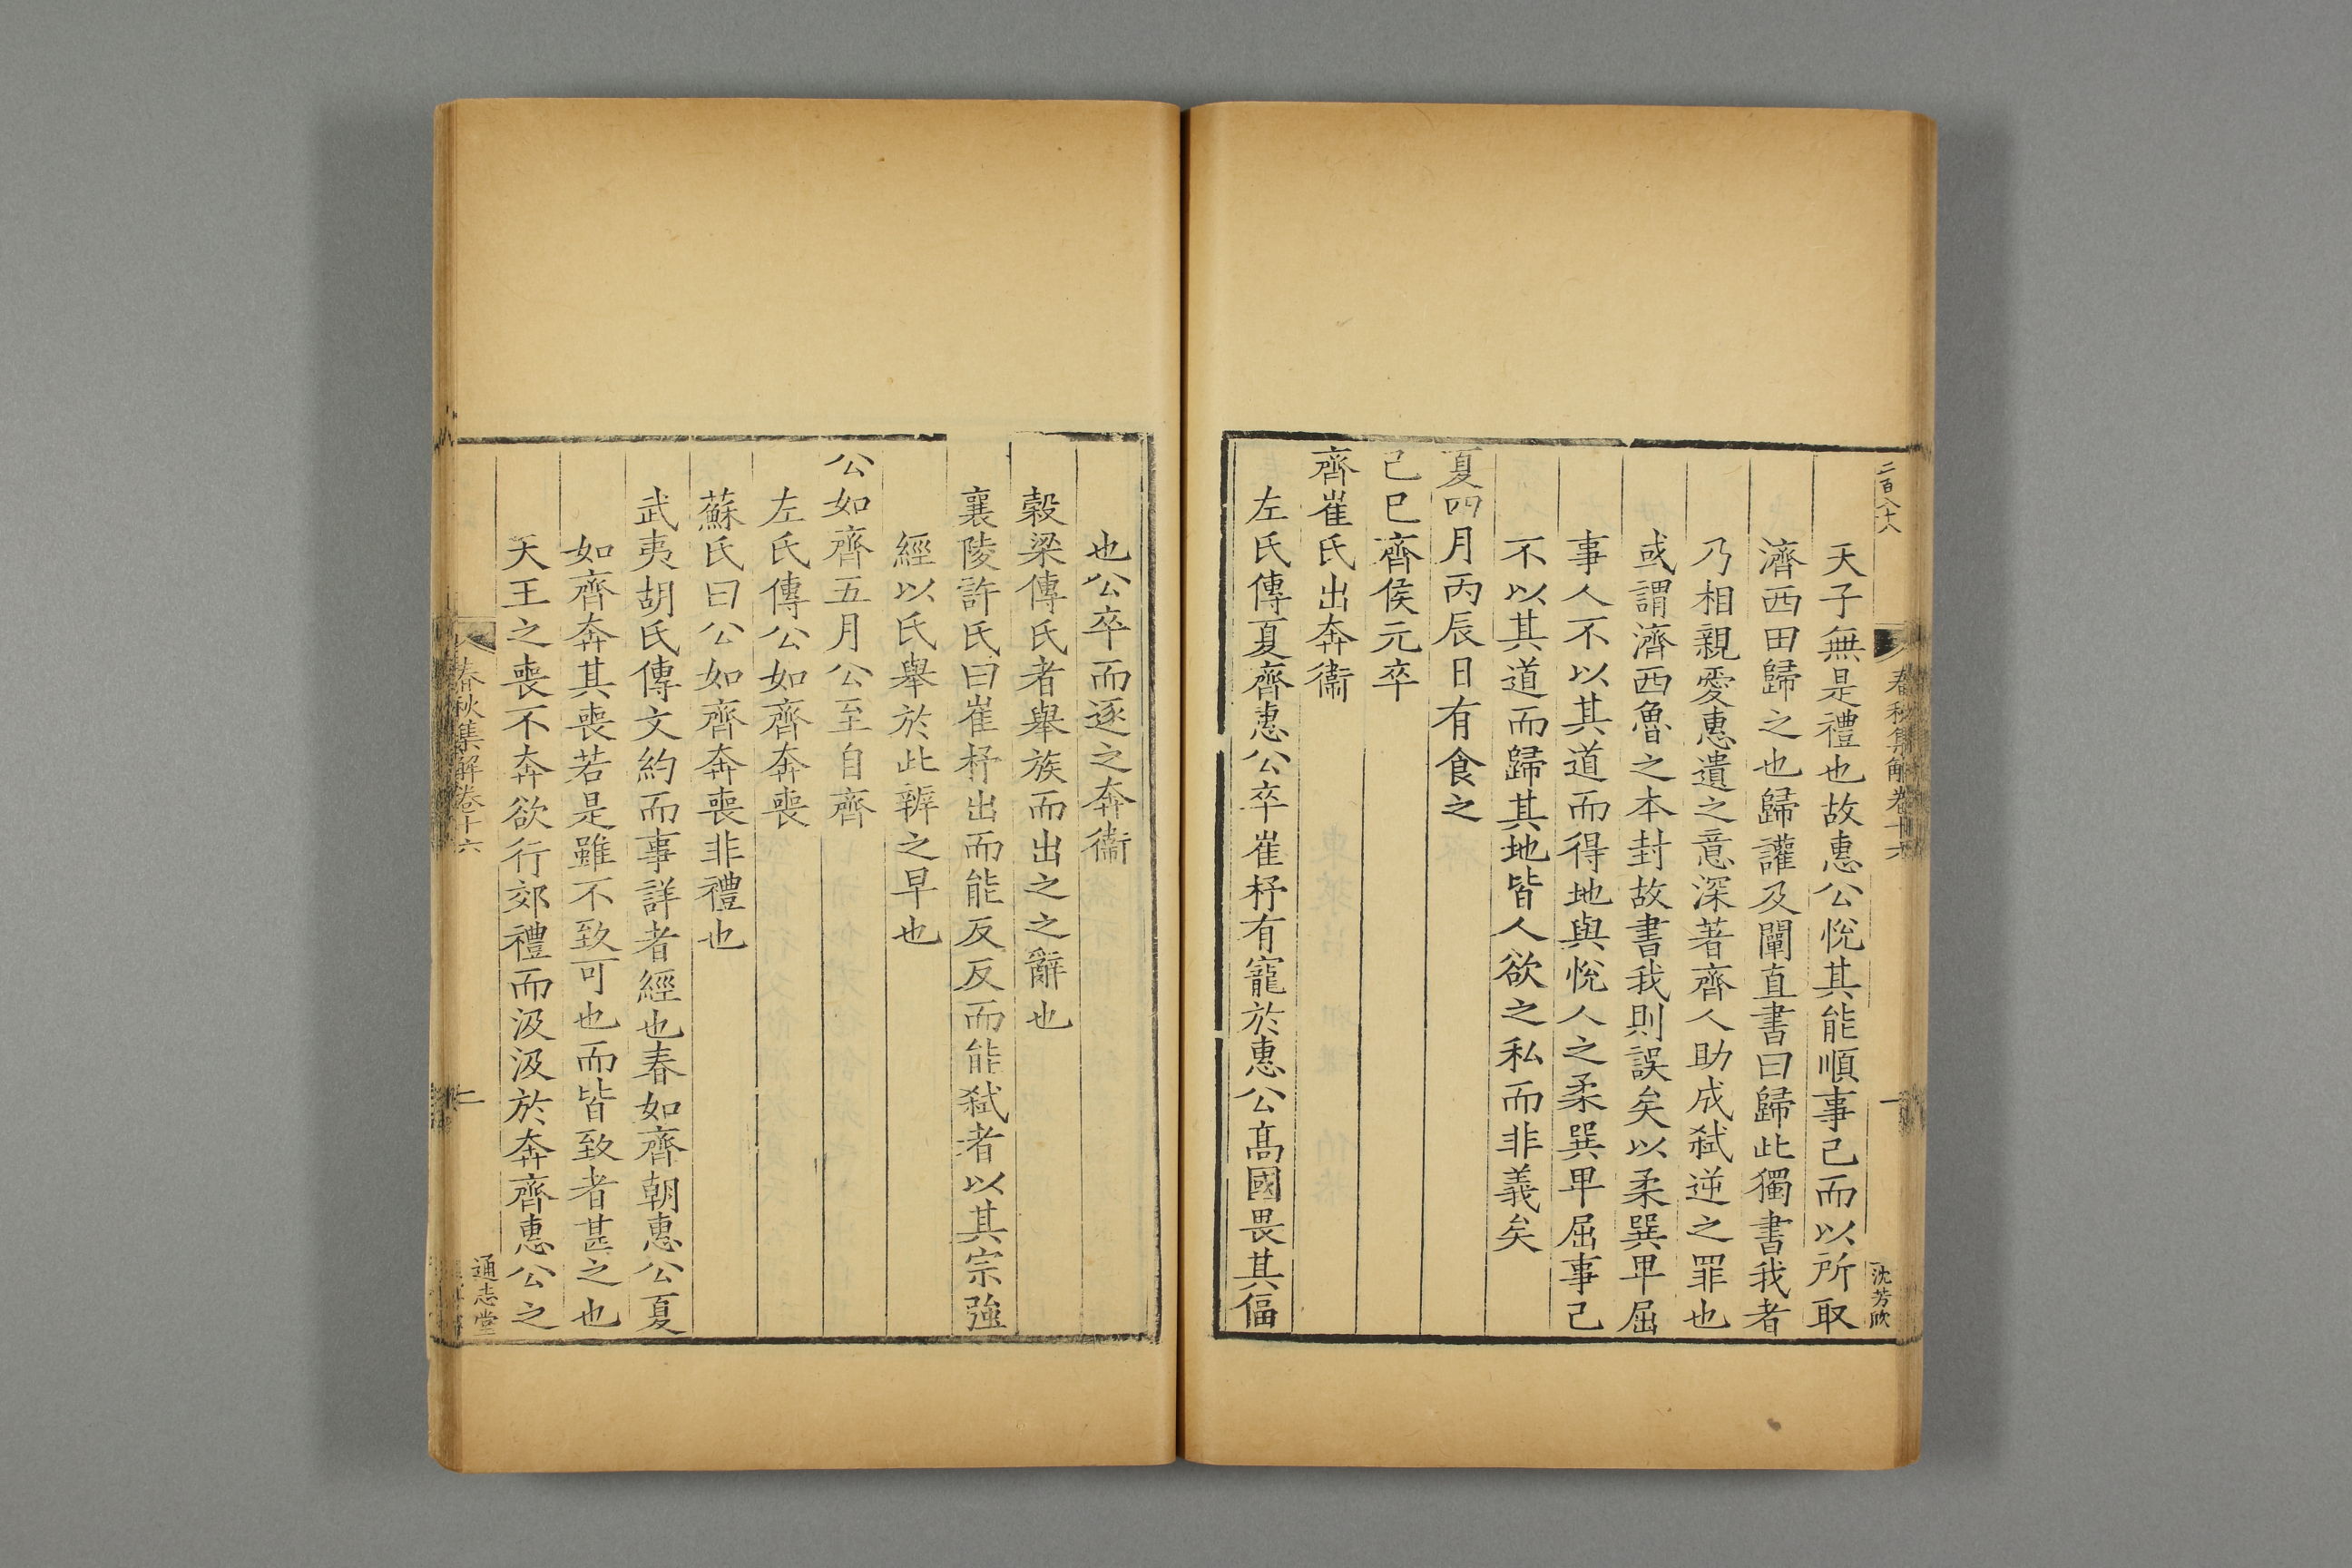 二百八十八
春秋集解卷十六
一
沈芳欣
天子無是禮也故惠公悅其能順事己而以所取
濟西田歸之也歸讙及闡直書曰歸此獨書我者
乃相親愛惠遺之意深著齊人助成弒逆之罪也
或謂濟西魯之本封故書我則誤矣以柔巽卑屈
事人不以其道而得地與悅人之柔巽卑屈事己
不以其道而歸其地皆人欲之私而非義矣
夏四月丙辰日有食之
己巳齊侯元卒
齊崔氏出奔衞
左氏傳夏齊惠公卒崔杼有寵於惠公高國畏其偪
也公卒而逐之奔衞
穀梁傳氏者舉族而出之之辭也
襄陵許氏曰崔杼出而能反反而能弒者以其宗強
經以氏舉於此辨之早也
公如齊五月公至自齊
左氏傳公如齊奔喪
蘇氏曰公如齊奔喪非禮也
武夷胡氏傳文約而事詳者經也春如齊朝惠公夏
如齊奔其喪若是雖不致可也而皆致者甚之也
天王之喪不奔欲行郊禮而汲汲於奔齊惠公之
春秋集解卷十六
二
通志堂